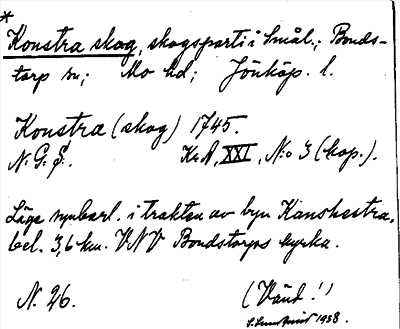 *
Konstra skog, skogsparti i Smål.; Bonds-
torp sn; Mo hd; Jönköp. l.
Konstra (skog) 1745.
N. G. S. KrA, XXI, N:o 3 (kop.).
Läge uppenb. i trakten av byn Kanshestra,
bel. 3,6 km. VNV Bondstorps kyrka.
N. 26. (Vänd!)
1938.